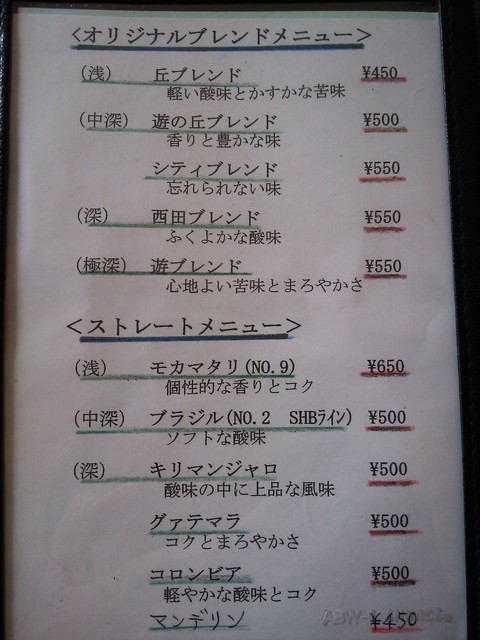 <オリジナルブレンドメニュー>
(浅) 丘ブレンド ¥450
軽い酸味とかすかな苦味
(中深) 遊の丘ブレンド ¥500
香りと豊かな味
シティブレンド ¥550
忘れられない味
(深) 西田ブレンド ¥550
ふくよかな酸味
(極深) 遊ブレンド ¥550
心地よい苦味とまろやかさ
<ストレートメニュー>
(浅) モカマタリ(NO.9) ¥650
個性的な香りとコク
(中深) ブラジル(NO.2 SHBライン) ¥500
ソフトな酸味
(深) キリマンジャロ ¥500
酸味の中に上品な風味
グァテマラ ¥500
コクとまろやかさ
コロンビア ¥500
軽やかな酸味とコク
マンデリン ¥450